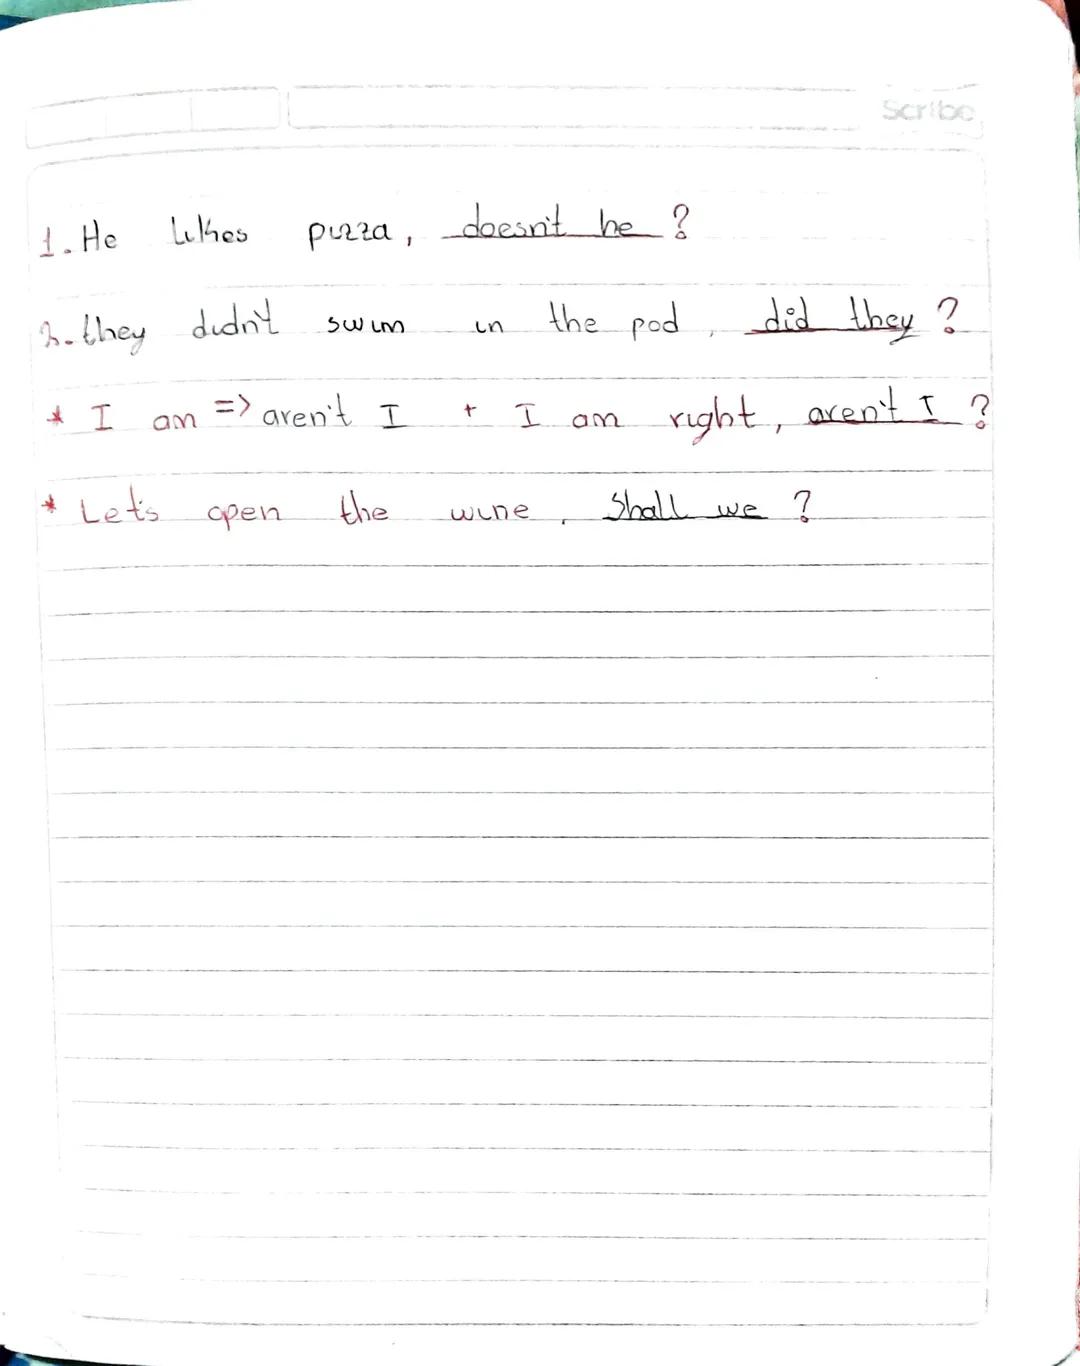 Scribe
1. He likes pizza, doesn't he ?
2. they didn't swim in the pod, did they ?
* I am => aren't I + I am right, aren't I ?
* Let's open the wine, Shall we ?